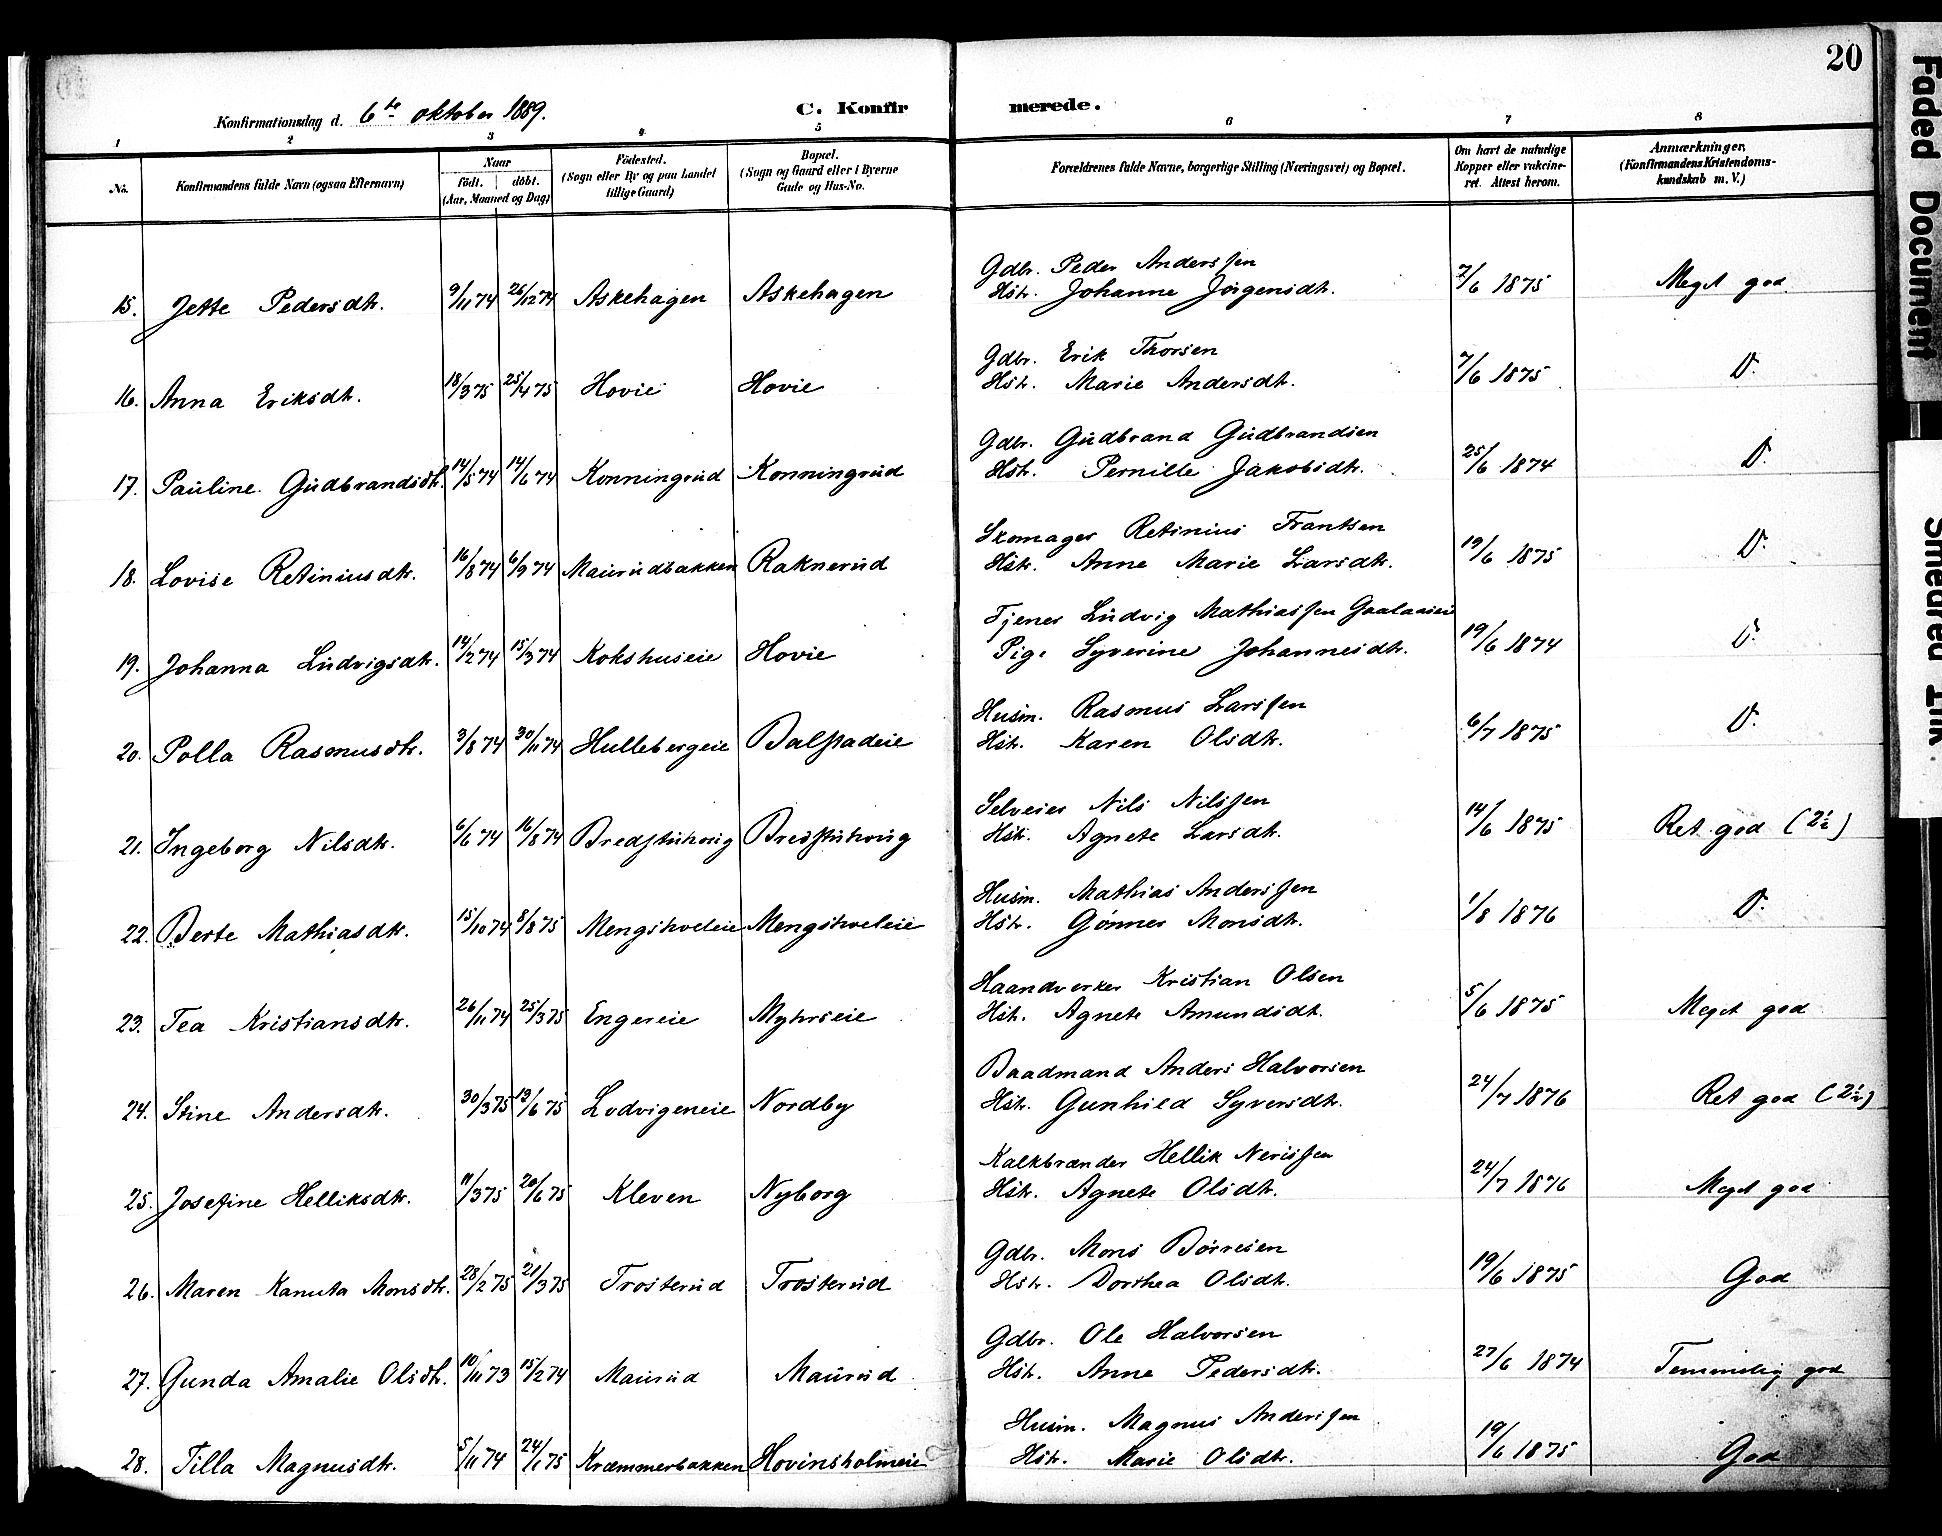 20
Faded Document
Smeared Ink.
Konfirmationsdag d. 6te oktober 1889. C. Konfirmerede.
1 2 3 4 5 6 7 8
No. Konfirmandens fulde Navn (ogsaa Efternavn) Naar født. døbt. (Aar, Maaned og Dag) Fødested. (Sogn eller By og paa Landet tillige Gaard) Bopæl. (Sogn og Gaard eller i Byerne Gade og Hus-No. Forældrenes fulde Navne, borgerlige Stilling (Næringsvei) og Bopæl. Om havt de naturlige Kopper eller vakcineret. Attest herom. Anmærkninger, (Konfirmandens Kristendomskundskab m. V.)
Gdbr. Peder Anderssen
15. Jette Pedersdtr. 9/11 74 26/12 74 Askehagen Askehagen Hstr. Johanne Jörgensdtr. 7/6 1875 Meget god
Gdbr. Erik Thorsen
16. Anna Eriksdtr. 18/3 75 25/4 75 Hovie Hovie Hstr. Marie Andersdtr. 7/6 1875 D.
Gdbr. Gudbrand Gudbrandsen
17. Pauline Gudbrandsdtr. 14/5 74 14/6 74 Konningrud Konningrud Hstr. Pernille Jakobsdtr. 25/6 1874 D.
Skomager Retinius Frantsen
18. Lovise Retiniusdtr. 16/8 74 6/9 74 Maurudbakken Raknerud Hstr. Anne Marie Larsdtr. 19/6 1875 D.
Tjener Ludvig Mathiassen Gaalaaseie
19. Johanna Ludvigsdtr. 14/2 74 15/3 74 Kokshuseie Hovie Pige Syverine Johannesdtr. 19/6 1874 D.
Husm. Rasmus Larssen
20. Polla Rasmusdtr. 3/8 74 30/11 74 Hullebergeie Balstadeie Hstr. Karen Olsdtr. 6/7 1875 D.
Selveier Nils Nilssen
21. Ingeborg Nilsdtr. 6/6 74 16/8 74 Bredstuhoug Bredstuhoug Hstr. Agnete Larsdtr. 14/6 1875 Ret god (2½)
Husm. Mathias Anderssen
22. Berte Mathiasdtr. 15/10 74 8/8 75 Mengshoeleie Mengshoeleie Hstr. Gönner Monsdtr. 1/8 1876 D.
Haandverker Kristian Olsen
23. Tea Kristiansdtr. 26/11 74 25/3 75 Engereie Myhrseie Hstr. Agnete Amundsdtr. 5/6 1875 Meget god
Baadmand Anders Halvorsen
24. Stine Andersdtr. 30/3 75 13/6 75 Lodvigeneie Nordby Hstr. Gunhild Syversdtr. 24/7 1876 Ret god (2½)
Kalkbrænder Hellik Nerissen
25. Josefine Helliksdtr. 11/3 75 20/6 75 Kleven Nyborg Hstr. Agnete Olsdtr. 24/7 1876 Meget god
Gdbr. Mons Börresen
26. Maren Kanuta Monsdtr. 28/2 75 21/3 75 Trosterud Trosterud Hstr. Dorthea Olsdtr. 19/6 1875 God
Gdbr. Ole Halvorsen
27. Gunda Amalie Olsdtr. 10/11 73 15/2 74 Maurud Maurud Hstr. Anne Pedersdtr. 27/6 1874 Temmelig god
Husm. Magnus Anderssen
28. Tilla Magnusdtr. 5/11 74 24/1 75 Kræmmerbakken Hovinsholmeie Hstr. Marie Olsdtr. 19/6 1875 God